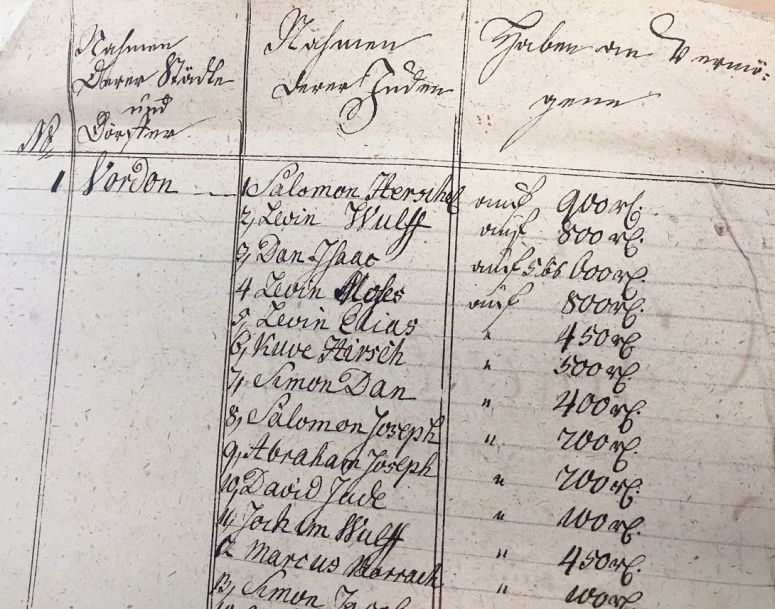 No
Nahmen
Derer Städte
und
Dörffer
Nahmen
Derer Juden
Haben an Vermö-
gene
1 Vordon 1, Salomon Herschel auf 900 rl.
2, Levin Wulff auf 800 rl.
3, Dan Isaac auf 5 bis 600 rl.
4 Levin Moses auf 800 rl.
5, Levin Elias " 450 rl.
6, Kuve Hirsch " 500 rl.
7, Simon Dan " 400 rl.
8, Salomon Joseph " 200 rl.
9, Abraham Joseph " 200 rl.
10, David Jude " 100 rl.
11, Jochim Wulff " 450 rl.
12 Marcus " 100 rl.
13, Simon